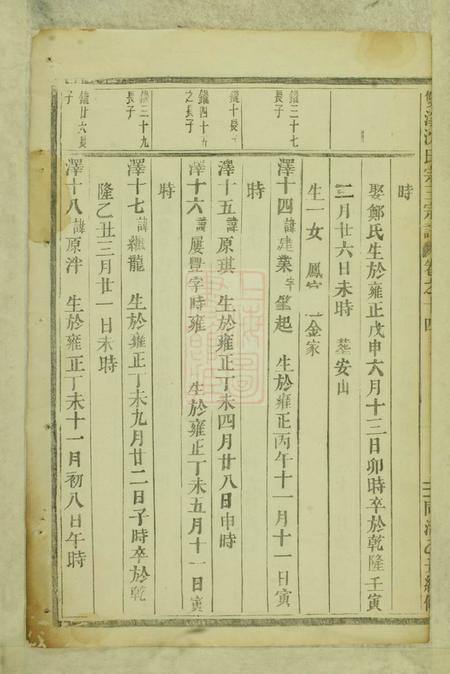 時
娶鄭氏生於雍正戊申六月十三日卯時卒於乾隆壬寅
二月廿六日未時 葬安山
生一女 鳳 金家
鐵三十七
長子
澤十四諱建業字肇起 生於雍正丙午十一月十一日寅
時
鐵十長子
澤十五諱原琪 生於雍正丁未四月廿八日申時
鐵四十五
之長子
澤十六諱屢豐字時雍 生於雍正丁未五月十一日寅
時
鐵三十九
長子
澤十七諱繼龍 生於雍正丁未九月廿二日子時卒於乾
隆乙丑三月廿一日未時
鐵廿六長
子
澤十八諱原泮 生於雍正丁未十一月初八日午時